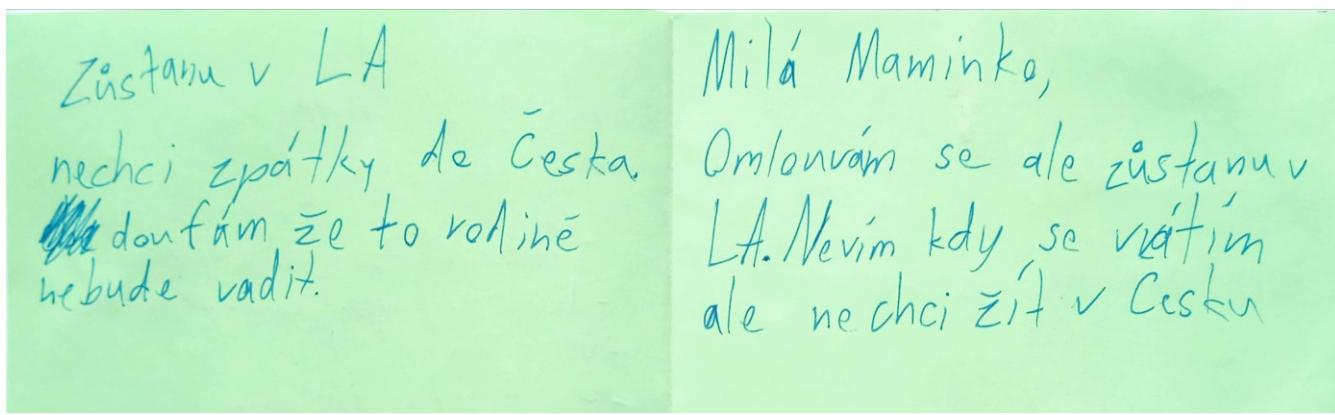 Zůstanu v LA
nechci zpátky do Česka.
doufám, že to rodině
nebude vadit.
Milá Maminko,
Omlouvám se ale zůstanu v
LA. Nevím kdy se vrátím
ale nechci žít v Cesku